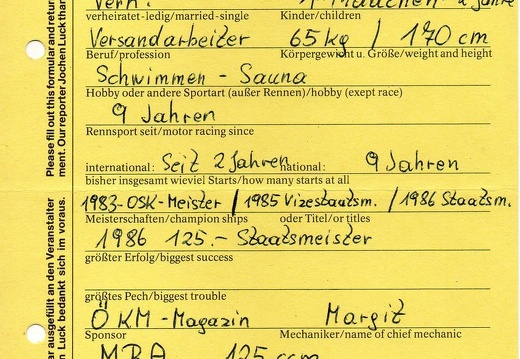 verh. 1 Mädchen 2 Jahre
verheiratet-ledig/married-single Kinder/children
Versandarbeiter 65 kg / 170 cm
Beruf/profession Körpergewicht u. Größe/weight and height
Schwimmen - Sauna
Hobby oder andere Sportart (außer Rennen)/hobby (exept race)
9 Jahren
Rennsport seit/motor racing since
international: Seit 2 Jahren national: 9 Jahren
bisher insgesamt wieviel Starts/how many starts at all
1983-OSK-Meister / 1985 Vizestaatsm. / 1986 Staatsm.
Meisterschaften/champion ships oder Titel/or titles
1986 125.- Staatsmeister
größter Erfolg/biggest success
größtes Pech/biggest trouble
Ö KM - Magazin Margit
Sponsor Mechaniker/name of chief mechanic
MBA 125 ccm
Please fill out this formular and retur
ment. Our reporter Jochen Luck than
ar ausgefüllt an den Veranstalter
n Luck bedankt sich im voraus.